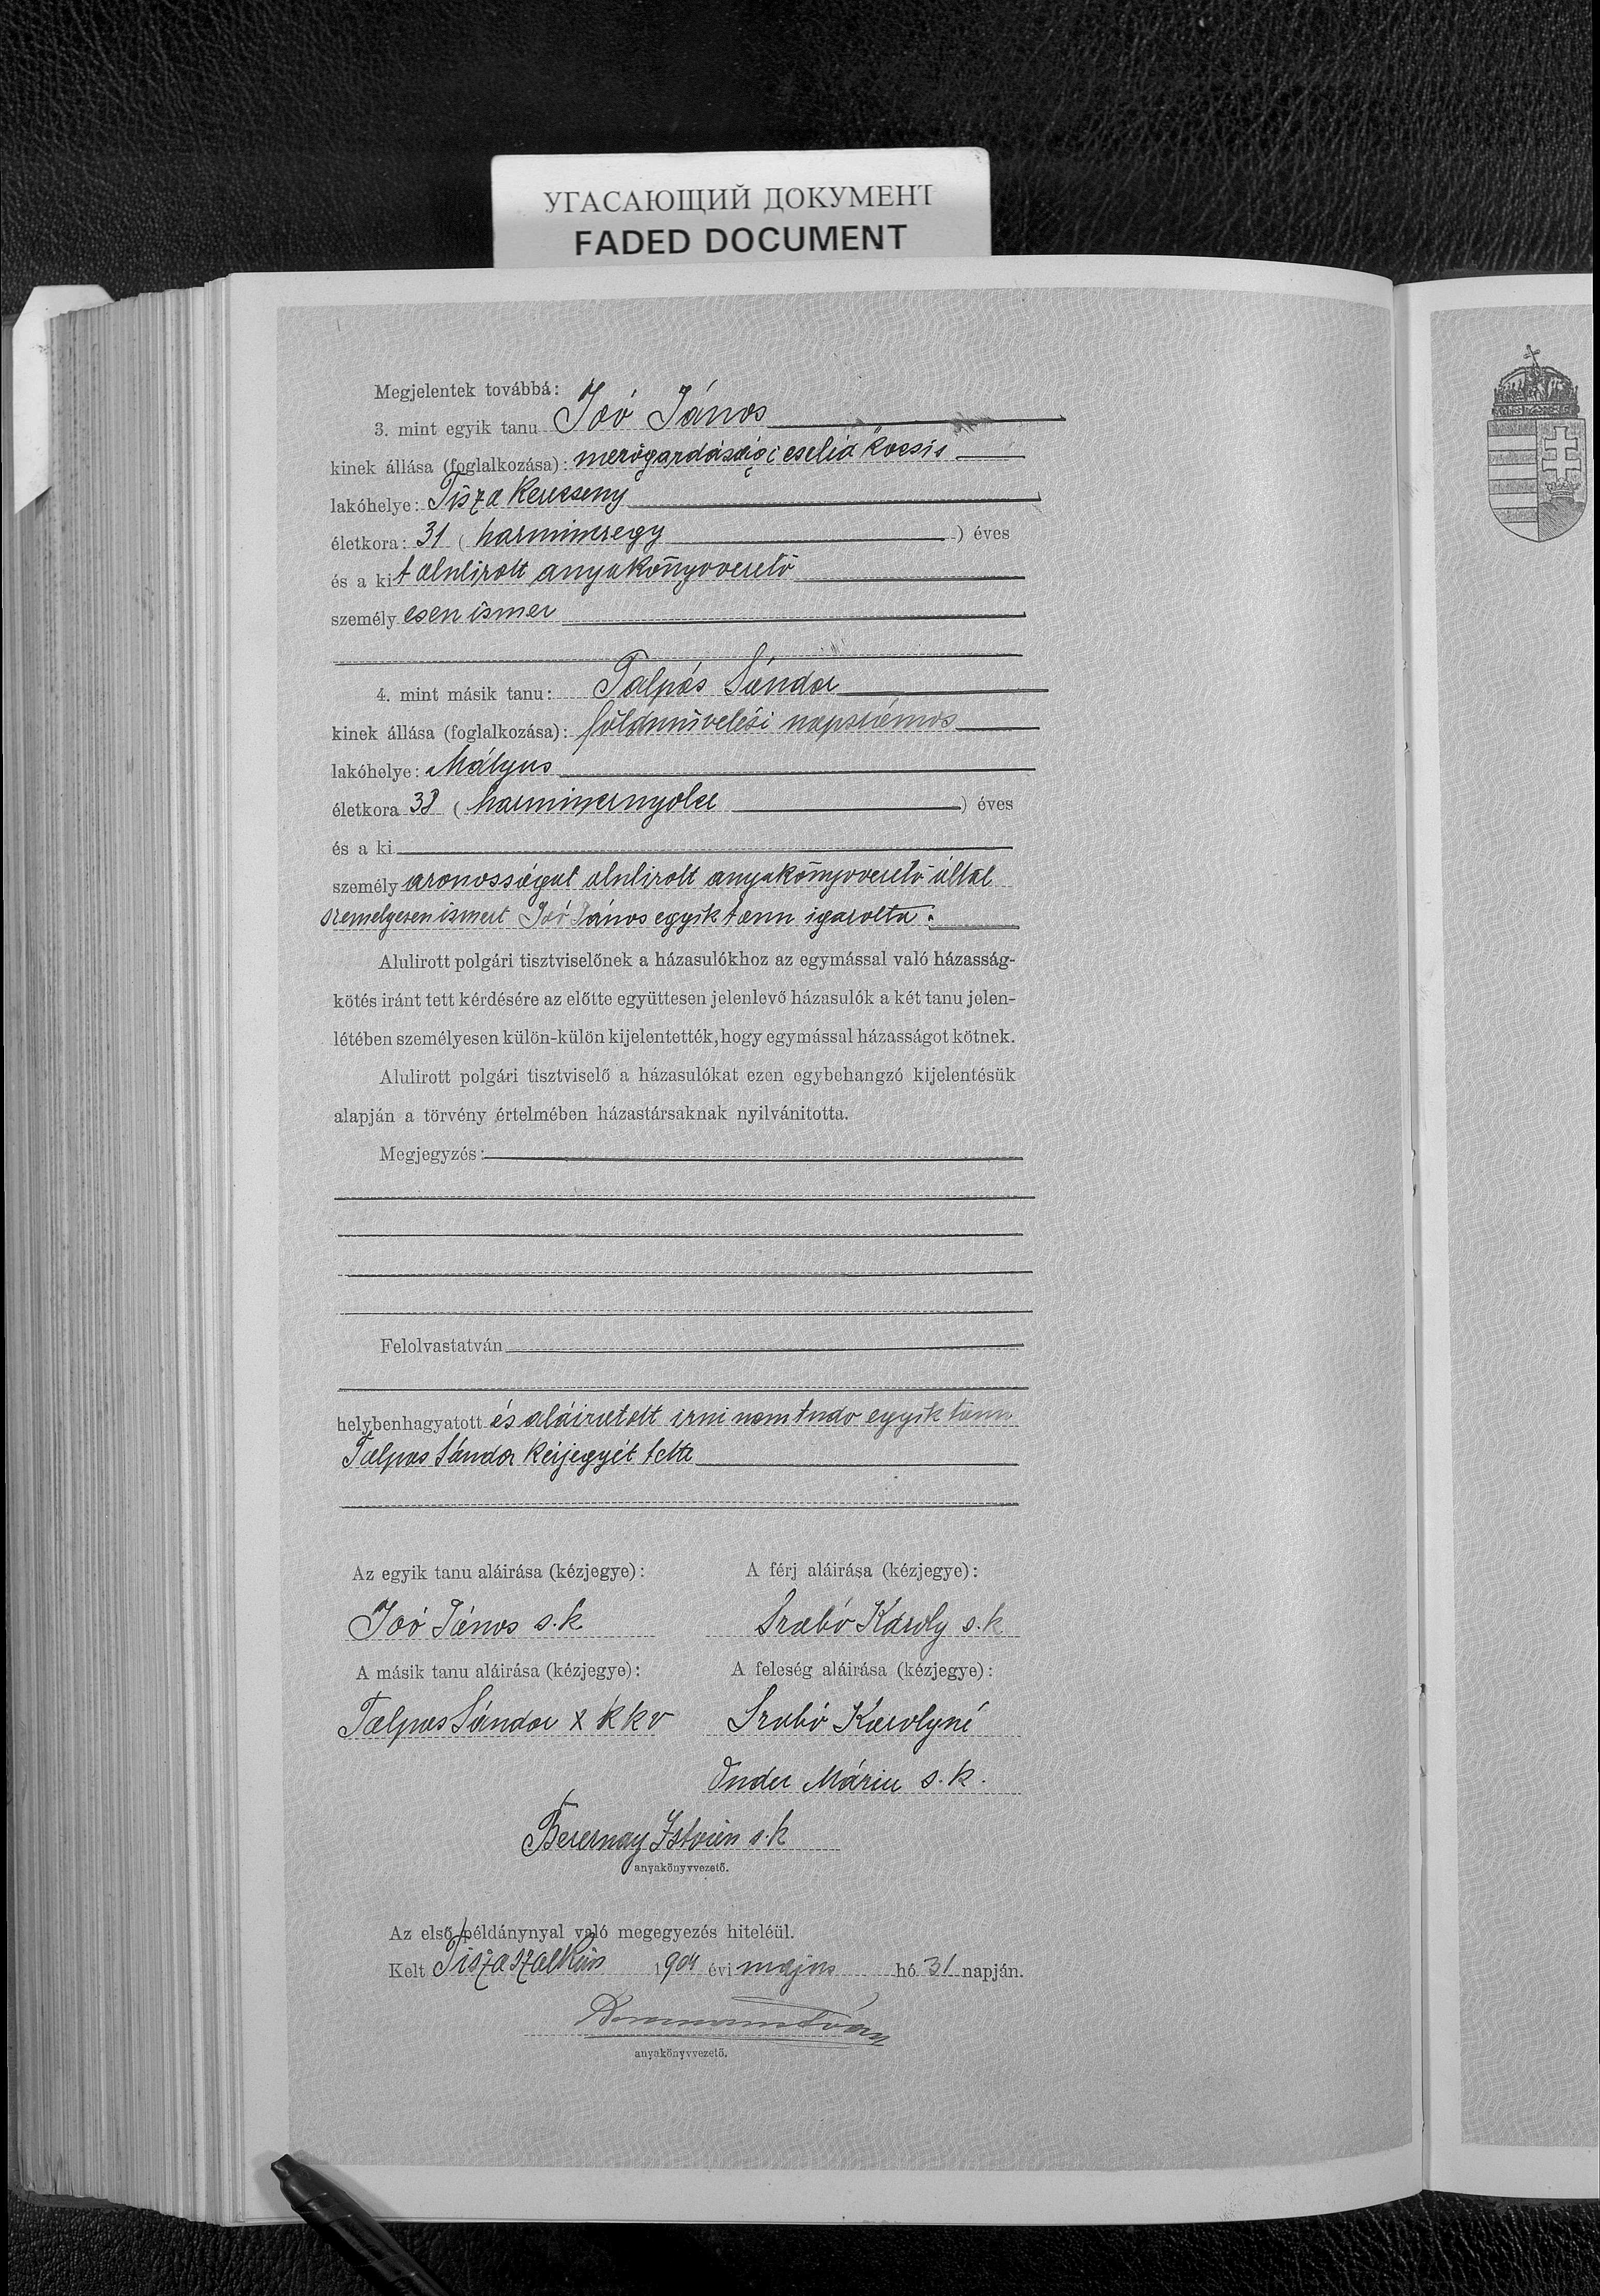 УГАСАЮЩИЙ ДОКУМЕНТ
FADED DOCUMENT
Megjelentek továbbá:
3. mint egyik tanu Joó János
kinek állása (foglalkozása): mezőgazdasági cseléd kocsis
lakóhelye: Tisza Kerecseny
életkora: 31 (harmincegy) éves
és a kit alulirott anyakönyvvezető
személyesen ismer
4. mint másik tanu: Talpas Sándor
kinek állása (foglalkozása): földmüvelési napszámos
lakóhelye: Mátyus
életkora 38 (harmincnyolcz) éves
és a ki
személyazonosságát alulirott anyakönyvvezető által
személyesen ismert Joó János egyik tanu igazolta.
Alulirott polgári tisztviselőnek a házasulókhoz az egymással való házasság-
kötés iránt tett kérdésére az előtte együttesen jelenlevő házasulók a két tanu jelen-
létében személyesen külön-külön kijelentették, hogy egymással házasságot kötnek.
Alulirott polgári tisztviselő a házasulókat ezen egybehangzó kijelentésük
alapján a törvény értelmében házastársaknak nyilvánitotta.
Megjegyzés:
Felolvastatván
helybenhagyatott és aláiratott irni nem tudo egyik tanu
Talpas Sándor kézjegyét tette
Az egyik tanu aláirása (kézjegye): A férj aláirása (kézjegye):
Joó János s.k. Szabó Károly s.k
A másik tanu aláirása (kézjegye): A feleség aláirása (kézjegye):
Talpas Sándor x k k v Szabó Károlyné
Mária s.k.
István s.k
anyakönyvvezető.
Az első példánynyal való megegyezés hiteléül.
Kelt Tiszaszalkán 1904 évi május hó 31 napján.
anyakönyvvezető.